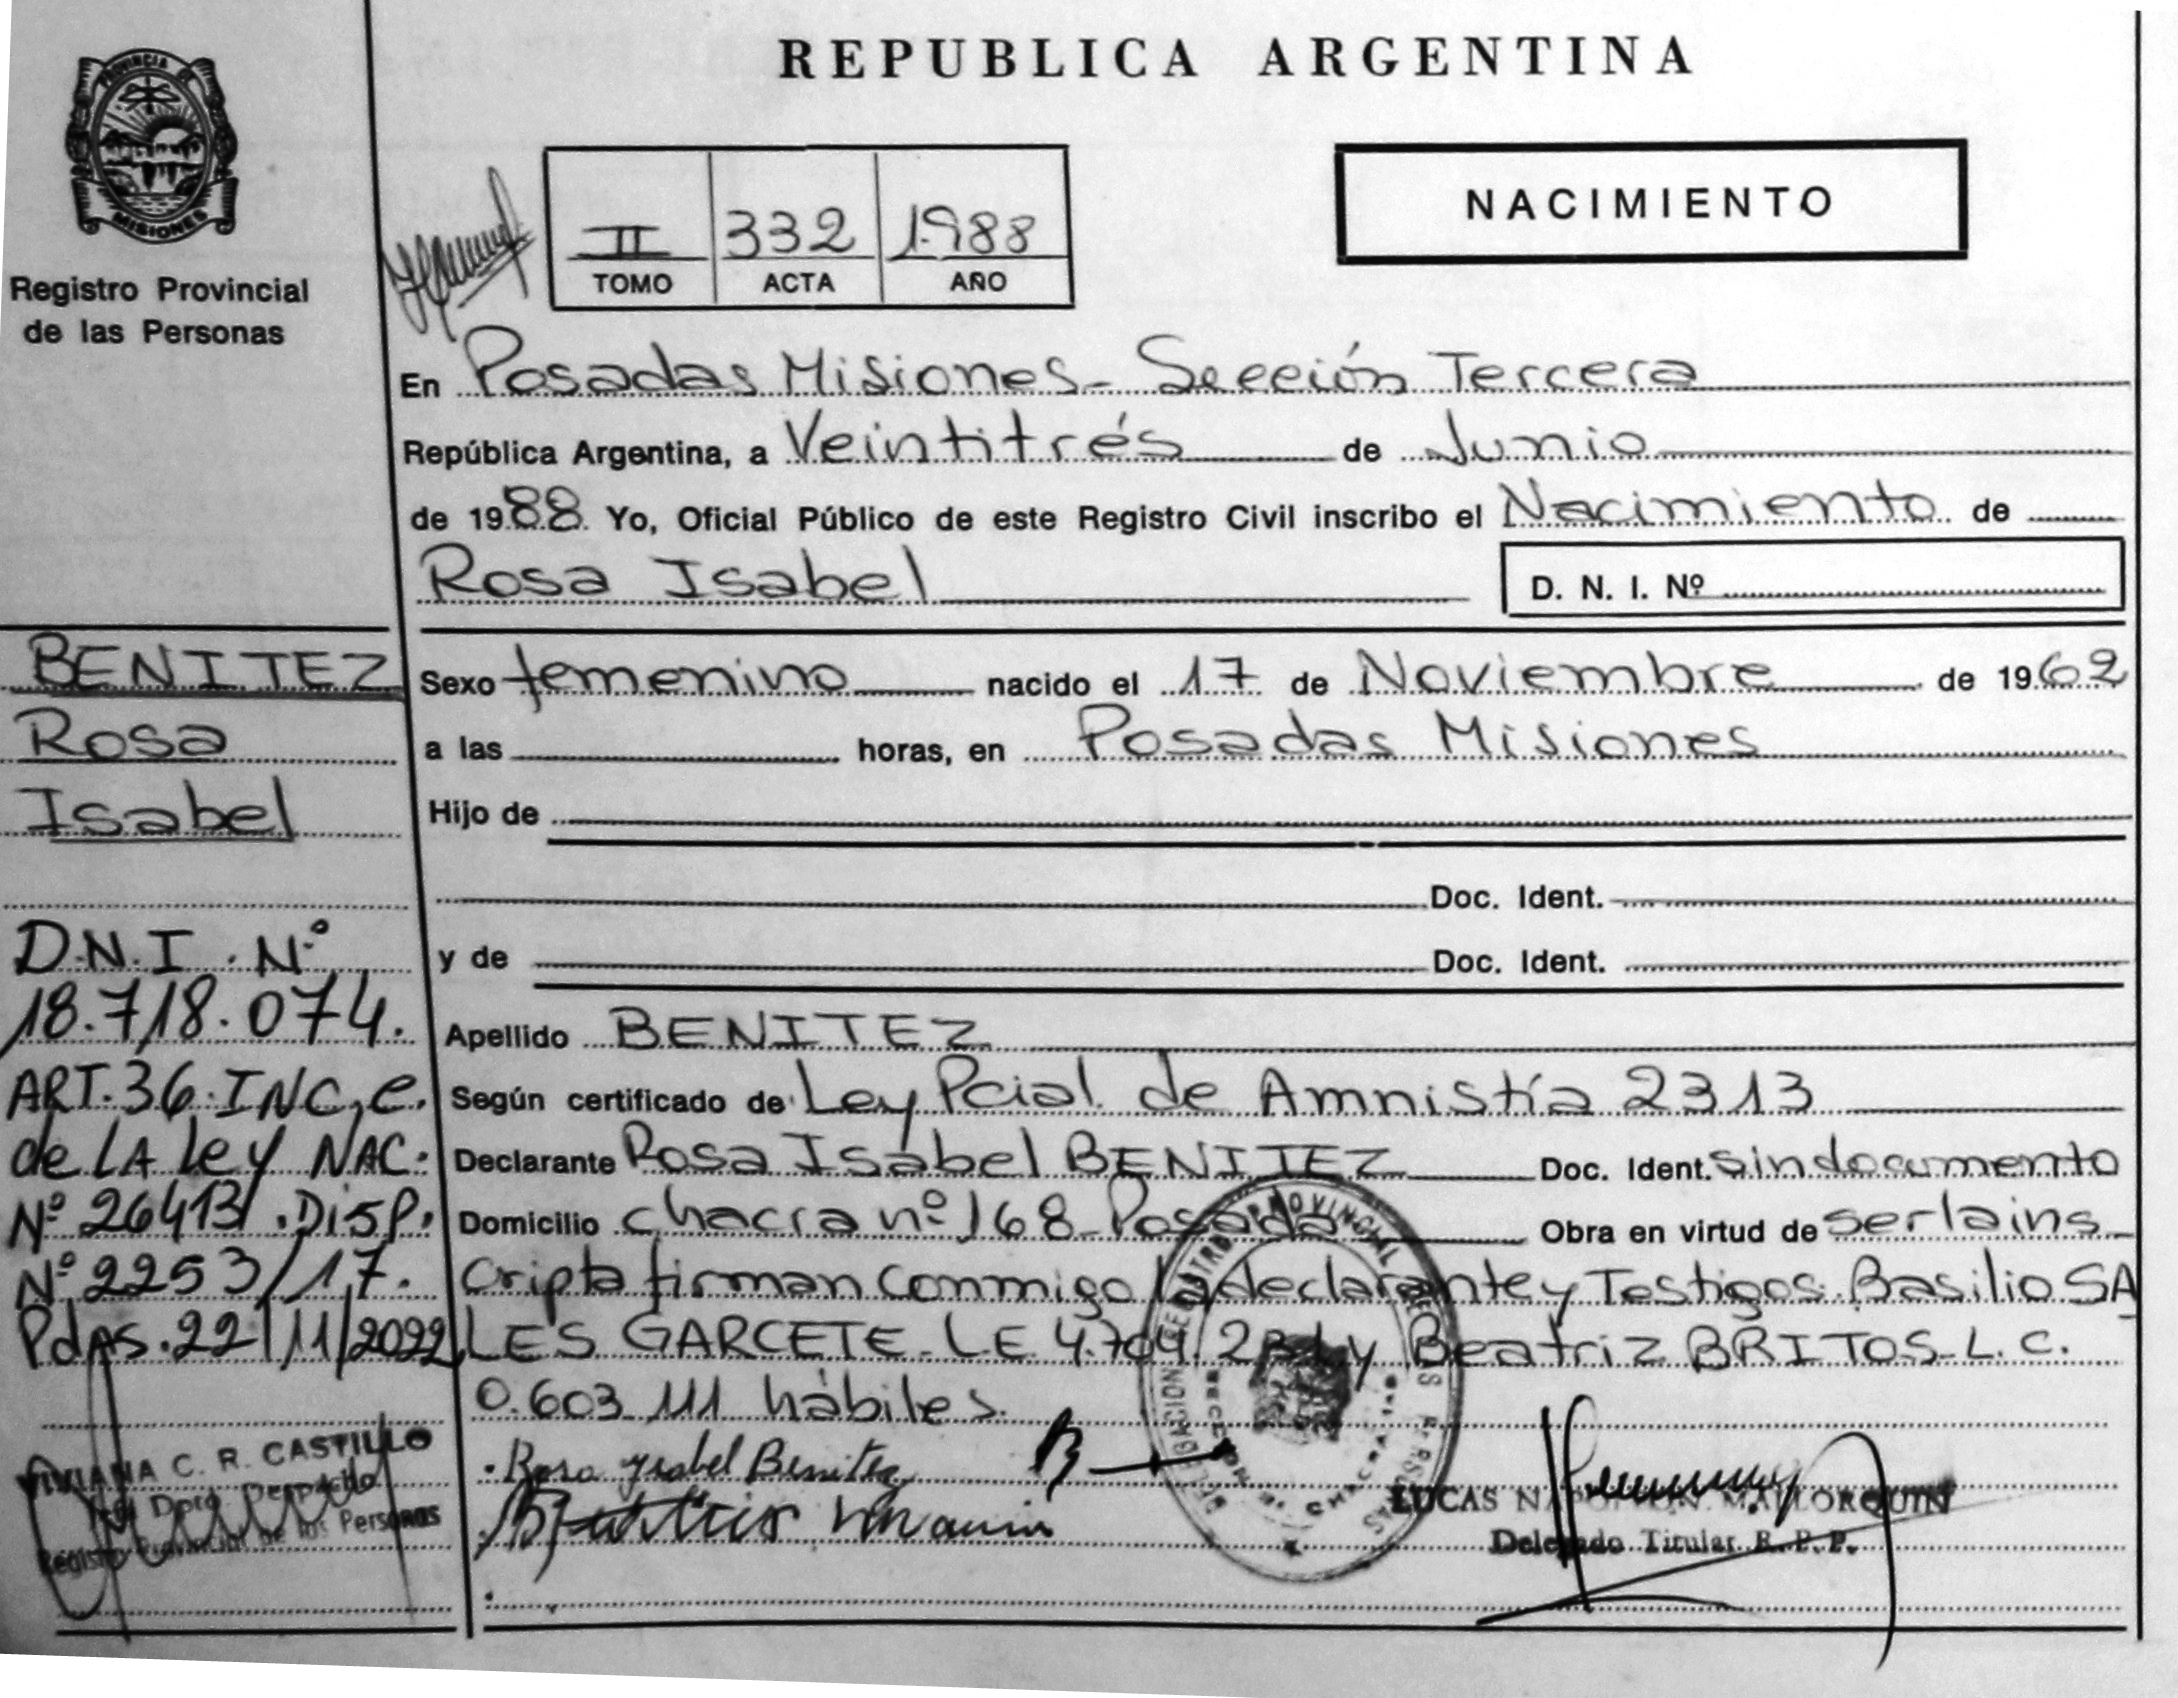 PROVINCIA DE
MISIONES
Registro Provincial
de las Personas
REPUBLICA ARGENTINA
II 332 1.988
TOMO ACTA AÑO
NACIMIENTO
En Posadas Misiones- Sección Tercera
República Argentina, a Veintitrés de Junio
de 1988. Yo, Oficial Público de este Registro Civil inscribo el Nacimiento de
Rosa Isabel
D. N. I. Nº
BENITEZ
Rosa
Isabel
D.N.I. Nº
18.718.074.
ART.36.INC,e.
de LA Ley NAC.
Nº 26413.DiSP.
Nº 2253/17.
Pdas.22/11/2022
VIVIANA C. R. CASTILLO
Dpto. Despacho
Registro Provincial de las Personas
Sexo femenino nacido el 17 de Noviembre de 1962
a las horas, en Posadas Misiones
Hijo de
Doc. Ident.
y de Doc. Ident.
Apellido BENITEZ
Según certificado de Ley Pcial. de Amnistía 2313
Declarante Rosa Isabel BENITEZ Doc. Ident. sindocumento
Domicilio chacra nº 168-Posada Obra en virtud de serlains
cripta firman conmigo la declarante y Testigos. Basilio SA
LES GARCETE- L.E 4.704. y Beatriz BRITOS-L. C.
0.603.111 hábiles.
Rosa Ysabel Benitez
LUCAS NAPOLEON MALLORQUIN
Delegado Titular R. P. P.